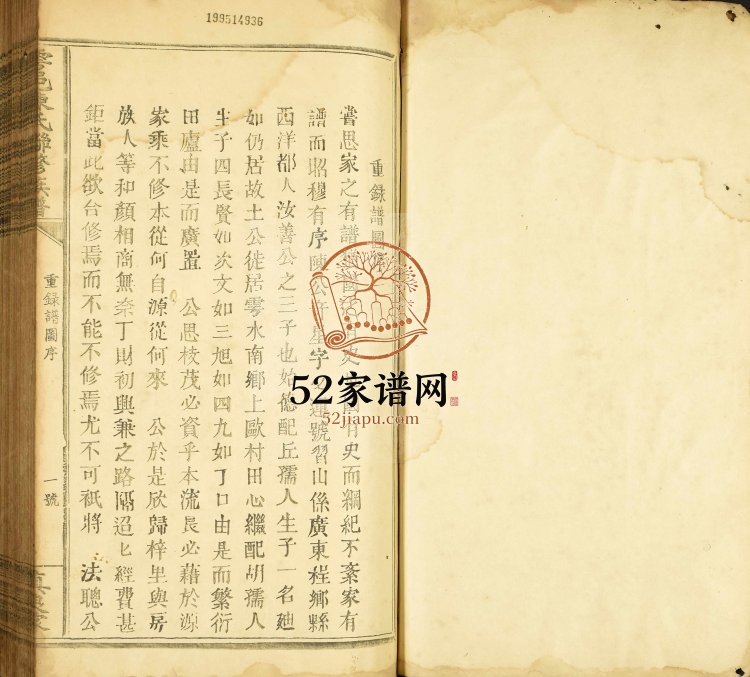 199514936
重録譜圖序
嘗思家之有譜國史而綱紀不紊家有
譜而昭穆有序陳公字號習山係廣東程鄉縣
西洋都人汝善公之三子也始德配丘孺人生子一名廸
如仍居故土公徙居雩水南鄉上歐村田心繼配胡孺人
生子四長賢如次文如三旭如四九如丁口由是而繁衍
田廬由是而廣置 公思枝茂必資乎本流長必藉於源
家乘不修本從何自源從何來 公於是欣歸梓里與房
族人等和顏相商無柰丁財初興兼之路隔迢匕經費甚
鉅當此欲合修焉而不能不修焉尤不可祇將 法聰公
重録譜圖序
一號
52家谱网
52jiapu.com